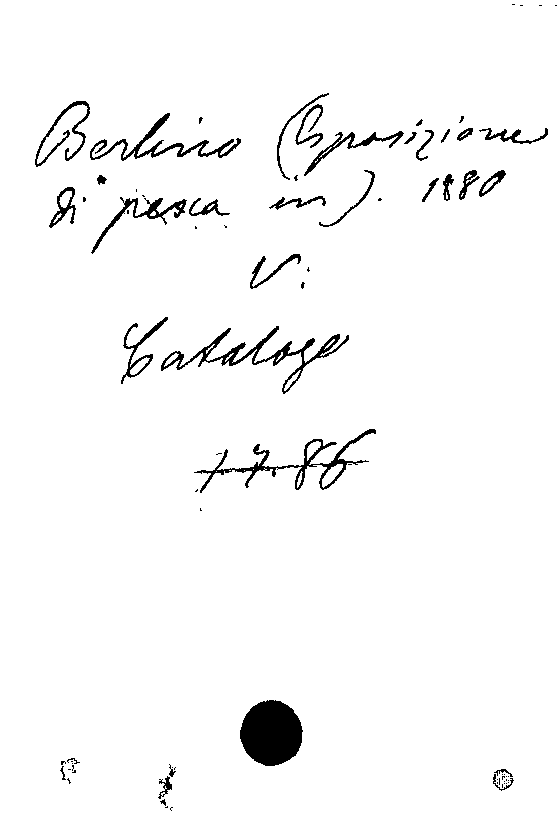 Berlino (Esposizione
di pesca in). 1880
V:
Catalogo
17.86